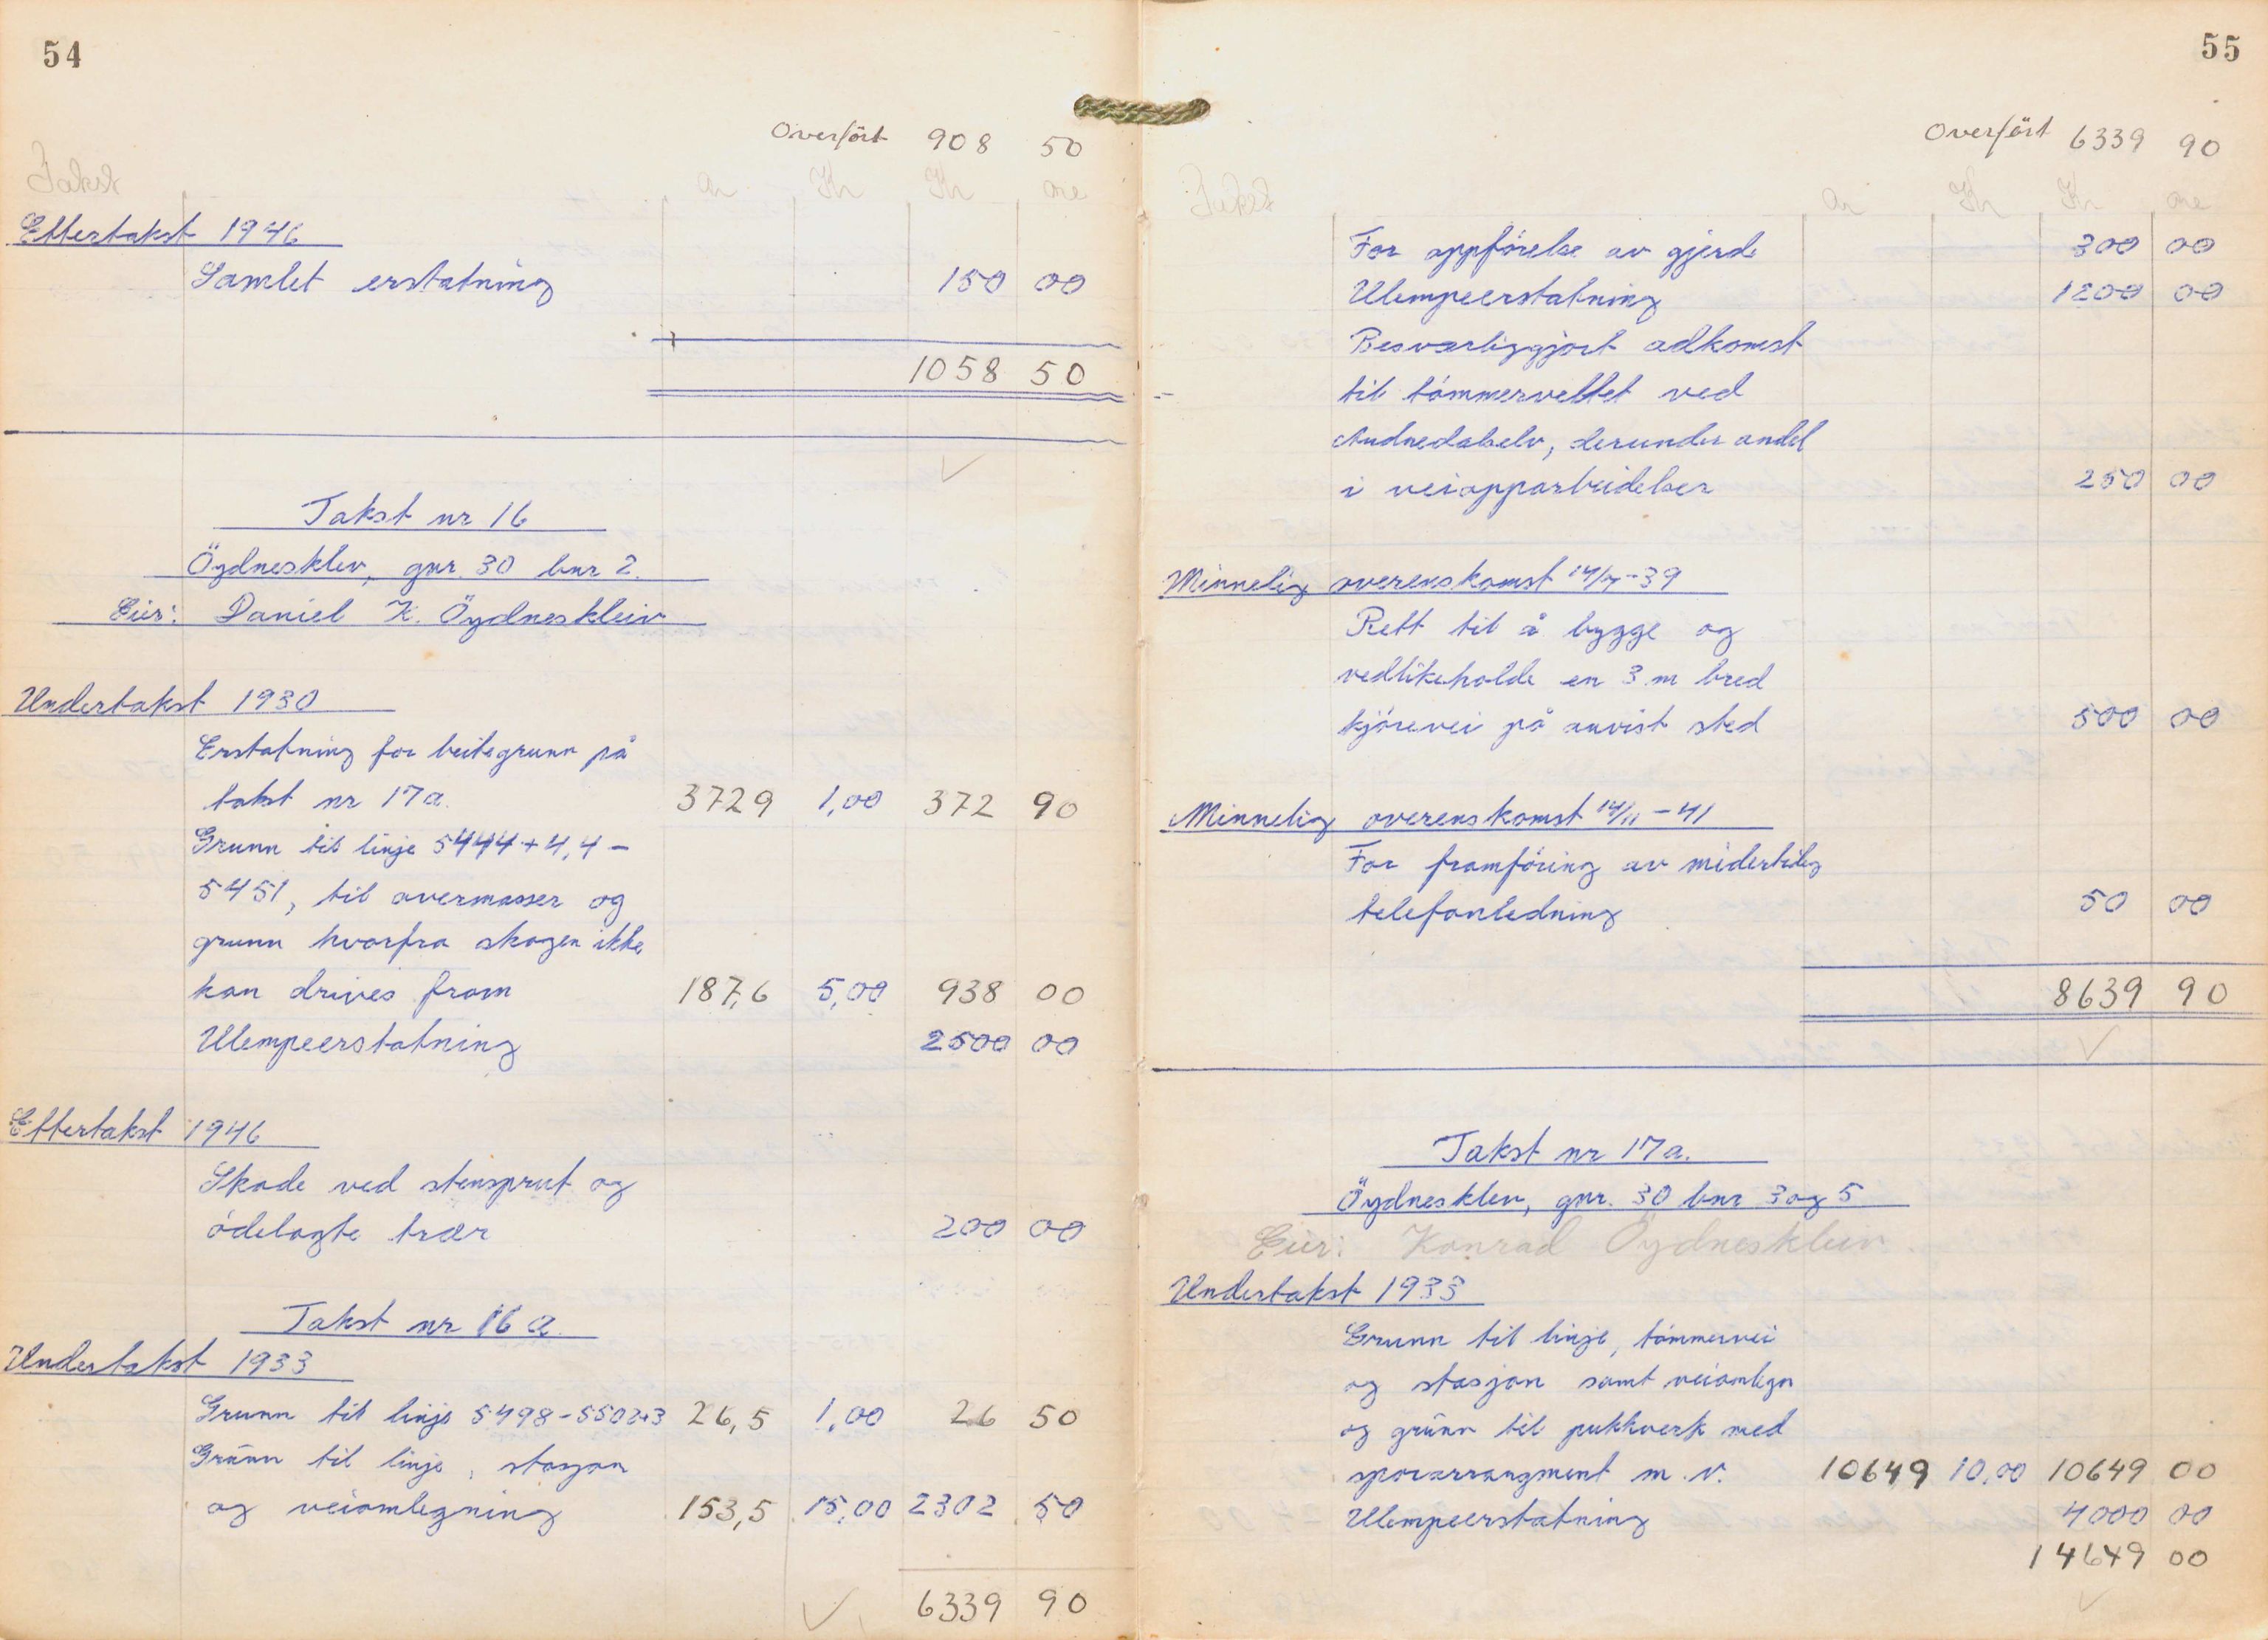 54
Overfört 908 50
Takst ar Kr Kr øre
Ettertakst 1946
Samlet erstatning 150 00
1058 50
Takst nr 16
Öydnesklev, gnr. 30 bnr 2.
Eier: Daniel K. Öydneskleiv
Undertakst 1930
Erstatning for beitegrunn på
takst nr 17a. 3729 1,00 372 90
Grunn til linje 5444 + 4,4 –
5451, til overmasser og
grunn hvorfra skogen ikke
kan drives fram 187,6 5,00 938 00
Ulempeerstatning 2500 00
Ettertakst 1946
Skade ved stensprut og
ödelagte trær 200 00
Takst nr 16 a.
Undertakst 1933
Grunn til linje 5498 – 5502+3 26,5 1,00 26 50
Grunn til linje, stasjon
og veiomlegning 153,5 15,00 2302 50
6339 90
55
Overfört 6339 90
Takst ar Kr Kr øre
For oppförelse av gjerde 300 00
Ulempeerstatning 1200 00
Besværliggjort adkomst
til tömmerveltet ved
Audnedalselv, derunder andel
i veiopparbeidelser 250 00
Minnelig overenskomst 14/7-39
Rett til å bygge og
vedlikeholde en 3 m bred
kjörevei på anvist sted 500 00
Minnelig overenskomst 14/11 – 41
For framföring av midertidig
telefonledning 50 00
8639 90
Takst nr 17a.
Öydnesklev, gnr. 30 bnr 3 og 5
Eier: Konrad Öydneskleiv.
Undertakst 1933
Grunn til linje, tömmervei
og stasjon samt veiomlegn
og grunn til pukkverk med
sporarrangment m.v. 10649 10,00 10649 00
Ulempeerstatning 4000 00
14649 00